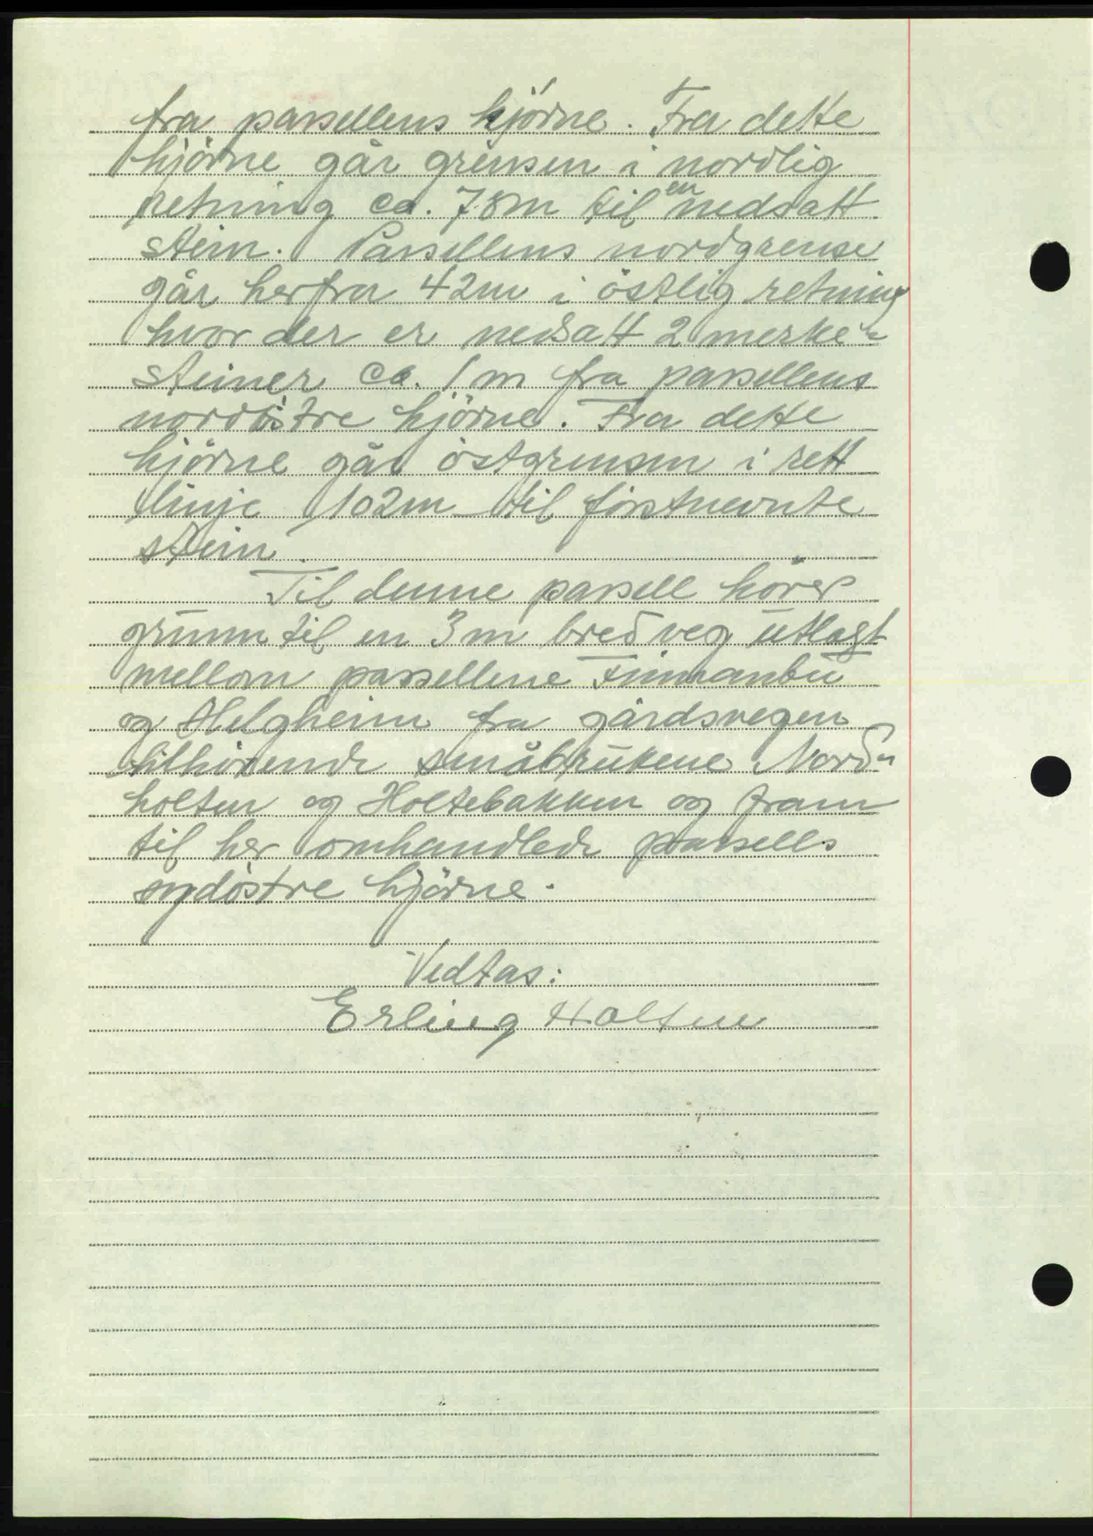 fra parsellens hjörne. Fra dette
hjörne går grensen i nordlig
retning ca. 78m til en nedsatt
stein. Parsellens nordgrense
går herfra 42m i östlig retning
hvor der er nedsatt 2 merke-
steiner ca. 1m fra parsellens
nordöstre hjörne. Fra dette
hjörne går östgrensen i rett
linje 102m til förstnevnte
stein.
Til denne parsell hörer
grunn til en 3m bred veg utlagt
mellom parsellene Finnanbu
og Helgheim fra gårdsvegen
tilhörende småbrukene Nord-
holten og Holtebakken og fram
til her omhandlede parsells
sydöstre hjörne.
Vedtas:
Erling Holten